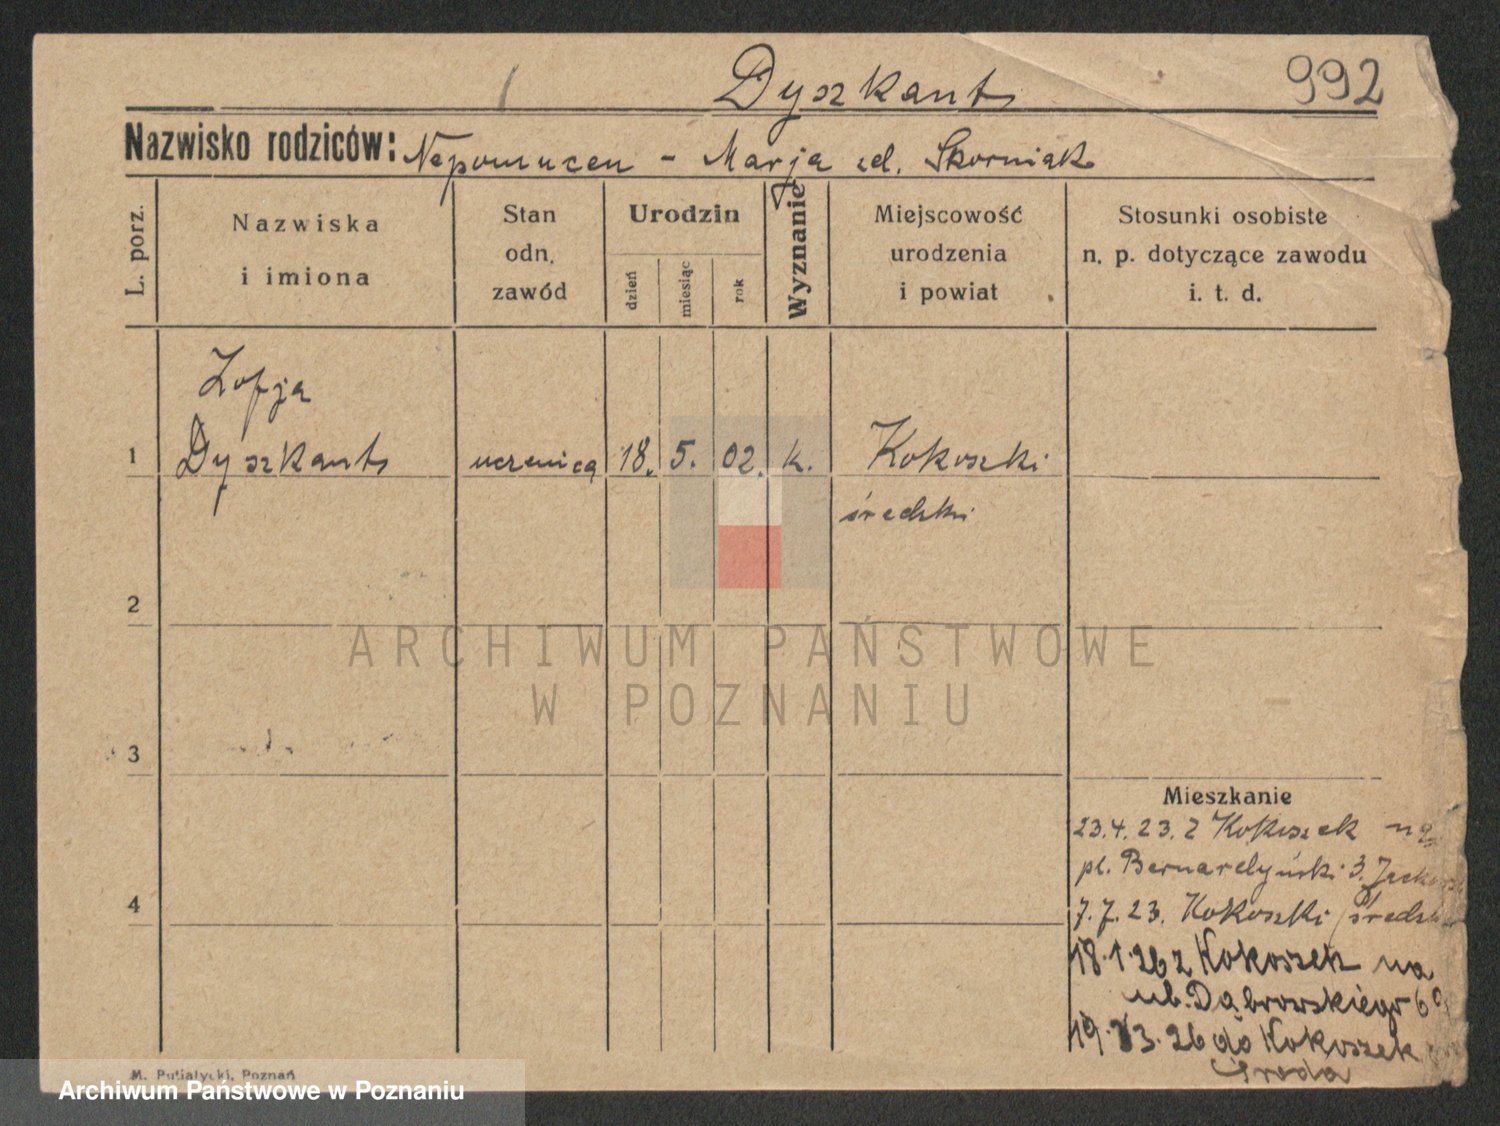 Dyszkant 992
Nazwisko rodziców: Nepomucen - Marja zd. Skorniak
L. porz.
Nazwiska
i imiona
Stan
odn.
zawód
Urodzin
dzień
miesiąc
rok
Wyznanie
Miejscowość
urodzenia
i powiat
Stosunki osobiste
n. p. dotyczące zawodu
i. t. d.
Zofja
1 Dyszkant uczenica 18. 5. 02. k. Kokoszki
średzki
2
ARCHIWUM PAŃSTWOWE
W POZNANIU
3
Mieszkanie
23.4.23. z Kokoszek na
pl. Bernardyński 3.
4
7.7.23. Kokoszki
18.1.26 z Kokoszek na
ul. Dąbrowskiego
19. 3.26 do Kokoszek
Środa
M. Putiatycki, Poznań
Archiwum Państwowe w Poznaniu